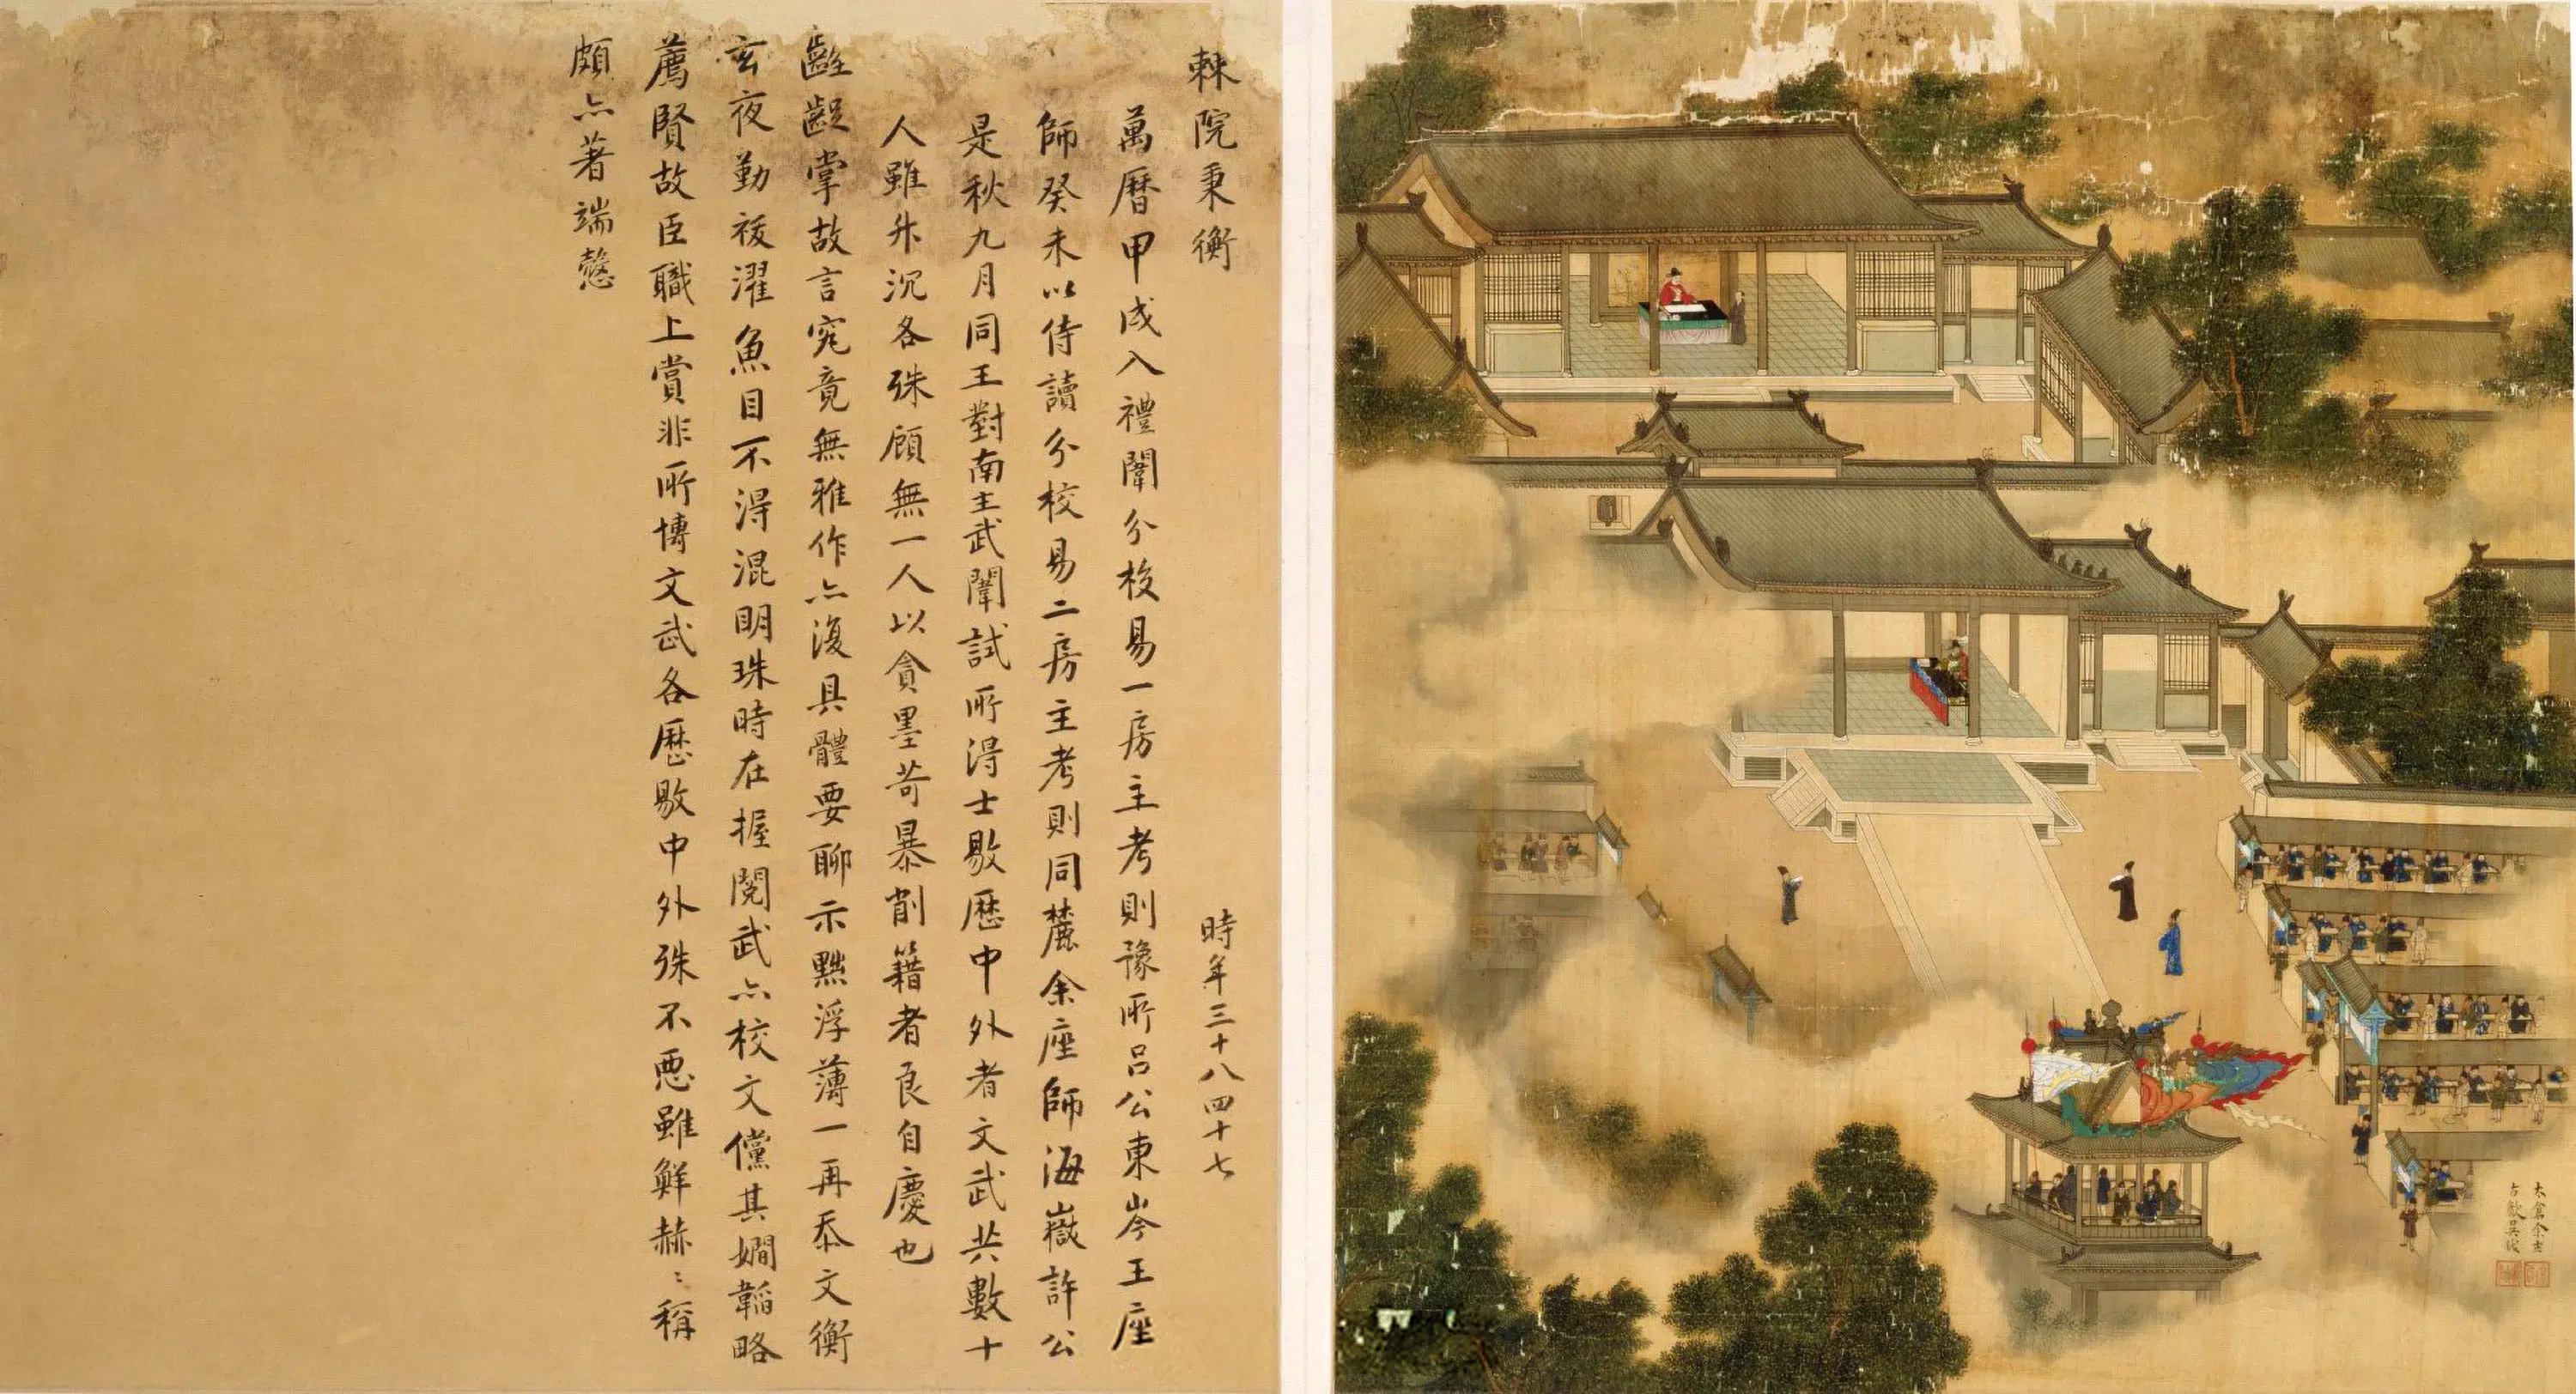 棘院秉衡
時年三十八四十七
萬曆甲戌入禮闈分校易一房主考則豫所呂公東岑王座
師癸未以侍讀分校易二房主考則同麓余座師海嶽許公
是秋九月同王對南主武闈試所得士敭歷中外者文武共數十
人雖升沉各殊顧無一人以貪墨苛暴削籍者良自慶也
齷齪掌故言究竟無雅作亦復具體要聊示黜浮薄一再忝文衡
玄夜勤祓濯魚目不得混明珠時在握閱武亦校文儻其嫺韜略
薦賢故臣職上賞非所博文武各歷敭中外殊不惡雖鮮赫〻稱
頗亦著端慤
太倉余壬
古歙吳鉞